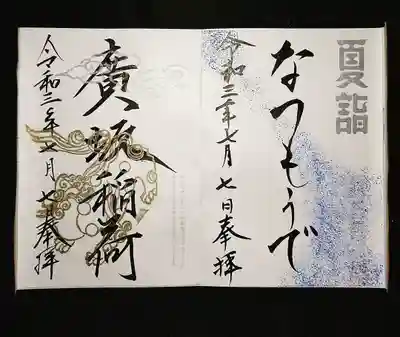 夏詣
なつもうで
令和三年七月七日奉拝
稲荷
令和三年七月七日奉拝